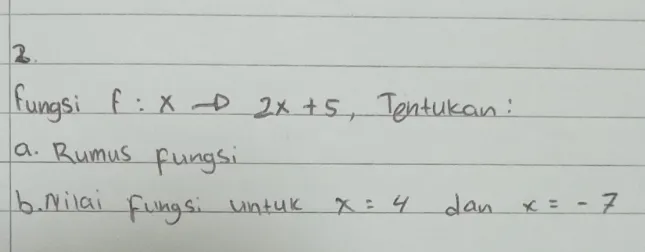 2.
Fungsi f : x → 2x + 5, Tentukan :
a. Rumus fungsi
b. Nilai fungsi untuk x = 4 dan x = - 7